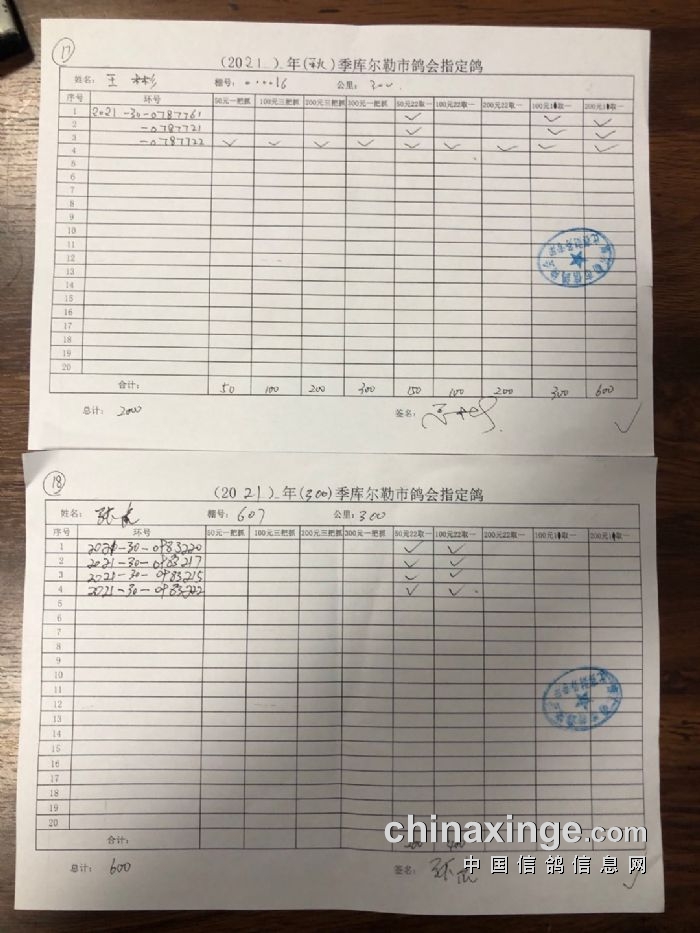 17
(2021)年(秋)季库尔勒市鸽会指定鸽
姓名: 王 彬彬 棚号: 000016 公里: 300
序号 环号 50元一把抓 100元三把抓 200元三把抓 300元一把抓 50元22取一 100元22取一 200元22取一 100元1取一 200元1取一
1 2021-30-0787761 ✓ ✓ ✓
2 -0787721 ✓ ✓ ✓
3 -0787722 ✓ ✓ ✓ ✓ ✓ ✓ ✓ ✓ ✓
4
5
6
7
8
9
10
11
12
13
14
15
16
17
18
19
20
合计: 50 100 200 300 150 100 200 300 600
总计: 2000 签名:
18
(2021)年(300)季库尔勒市鸽会指定鸽
姓名: 张 棚号: 607 公里: 300
序号 环号 50元一把抓 100元三把抓 200元三把抓 300元一把抓 50元22取一 100元22取一 200元22取一 100元1取一 200元1取一
1 2021-30-0983220 ✓ ✓
2 2021-30-0983217 ✓ ✓
3 2021-30-0983215 ✓ ✓
4 2021-30-0983222 ✓ ✓
5
6
7
8
9
10
11
12
13
14
15
16
17
18
19
20
合计: 200 400
总计: 600 签名: 张
chinaxinge.com
中国信鸽信息网